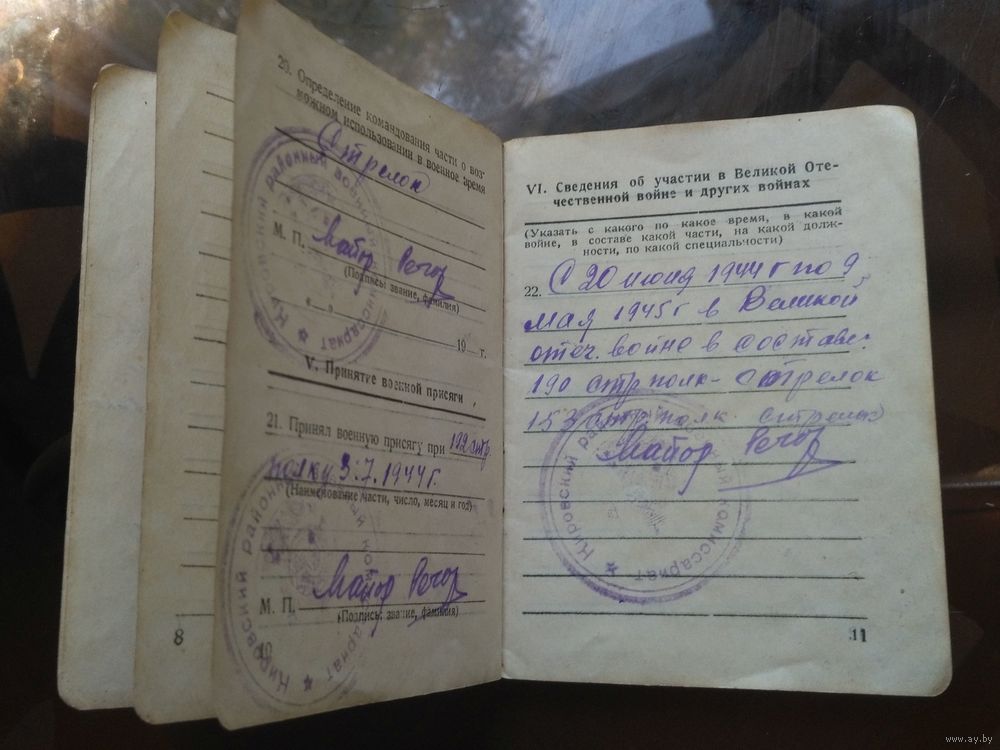 20. Определение командования части о воз-
можном использовании в военное время
Стрелок
М. П. Майор
(Подпись: звание, фамилия)
19 г.
V. Принятие военной присяги
21. Принял военную присягу при 192 стр.
полку 3.7.1944 г.
(Наименование части, число, месяц и год)
М. П. Майор
(Подпись: звание, фамилия)
8
10
VI. Сведения об участии в Великой Оте-
чественной войне и других войнах
(Указать с какого по какое время, в какой
войне, в составе какой части, на какой долж-
ности, по какой специальности)
22. С 20 июня 1944 г по 9
мая 1945 г в Великой
отеч. войне в составе:
190 стр полк - стрелок
153 стр полк стрелок
Майор
Кировский районный военный комиссариат
11
www.ay.by